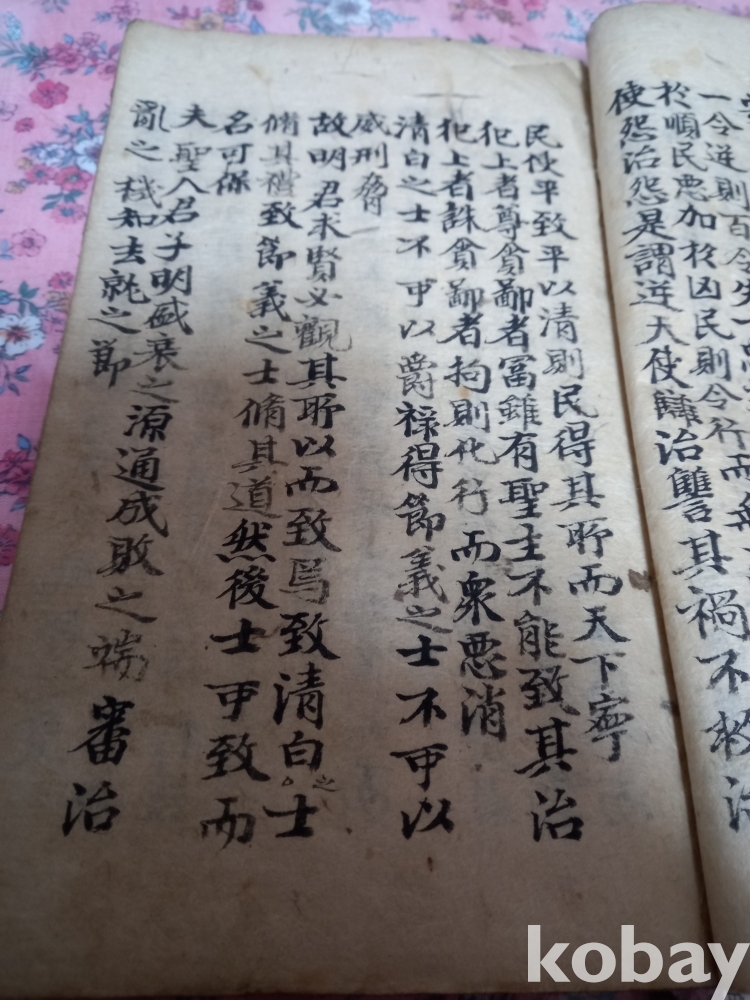 一令逆則百令失一
於順民惡加於凶民則令行而
使怨治怨是謂逆天使讐治讐其禍不救治
民使平致平以清則民得其所而天下寧
犯上者尊貪鄙者富雖有聖主不能致其治
犯上者誅貪鄙者拘則化行而衆惡消
清白之士不可以爵祿得節義之士不可以
威刑脅
故明君求賢必觀其所以而致焉致清白之士
脩其禮致節義之士脩其道然後士可致而
名可保
夫聖人君子明盛衰之源通成敗之端審治
亂之機知去就之節
kobay